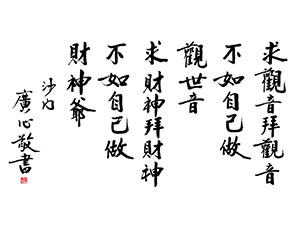 求觀音拜觀音
不如自己做
觀世音
求財神拜財神
不如自己做
財神爺
沙內
廣心敬書